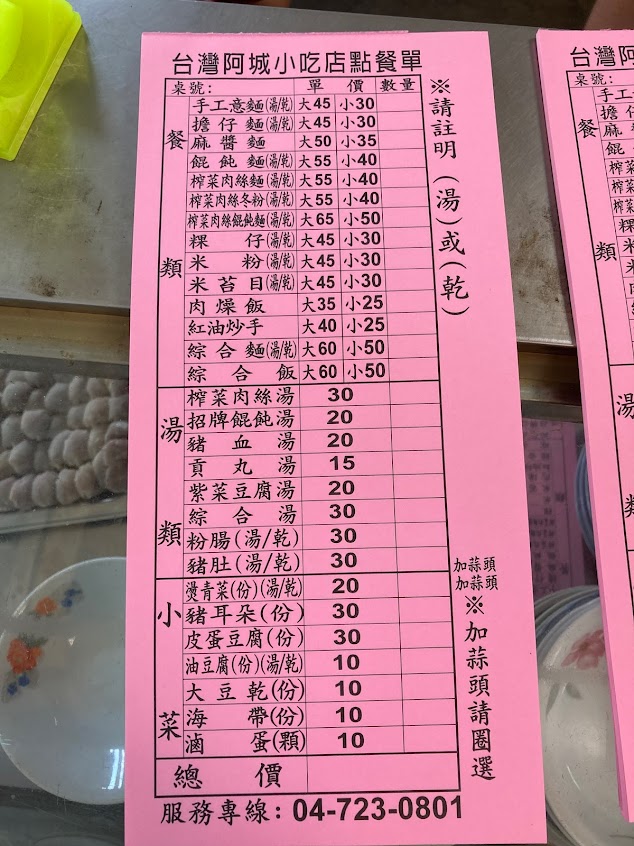 台灣阿城小吃店點餐單
桌號: 單價 數量
餐類
手工意麵(湯/乾) 大45 小30
擔仔麵(湯/乾) 大45 小30
麻醬麵 大50 小35
餛飩麵(湯/乾) 大55 小40
榨菜肉絲麵(湯/乾) 大55 小40
榨菜肉絲冬粉(湯/乾) 大55 小40
榨菜肉絲餛飩麵(湯/乾) 大65 小50
粿仔(湯/乾) 大45 小30
米粉(湯/乾) 大45 小30
米苔目(湯/乾) 大45 小30
肉燥飯 大35 小25
紅油炒手 大40 小25
綜合麵(湯/乾) 大60 小50
綜合飯 大60 小50
湯類
榨菜肉絲湯 30
招牌餛飩湯 20
豬血湯 20
貢丸湯 15
紫菜豆腐湯 20
綜合湯 30
粉腸(湯/乾) 30
豬肚(湯/乾) 30
小菜
燙青菜(份)(湯/乾) 20
豬耳朵(份) 30
皮蛋豆腐(份) 30
油豆腐(份)(湯/乾) 10
大豆乾(份) 10
海帶(份) 10
滷蛋(顆) 10
總價
服務專線: 04-723-0801
※請註明(湯)或(乾)
加蒜頭
加蒜頭
※加蒜頭請圈選
台灣阿
桌號:
餐類
手工
擔仔
麻醬
餛飩
榨菜
榨菜
榨菜
粿
米
米
湯類